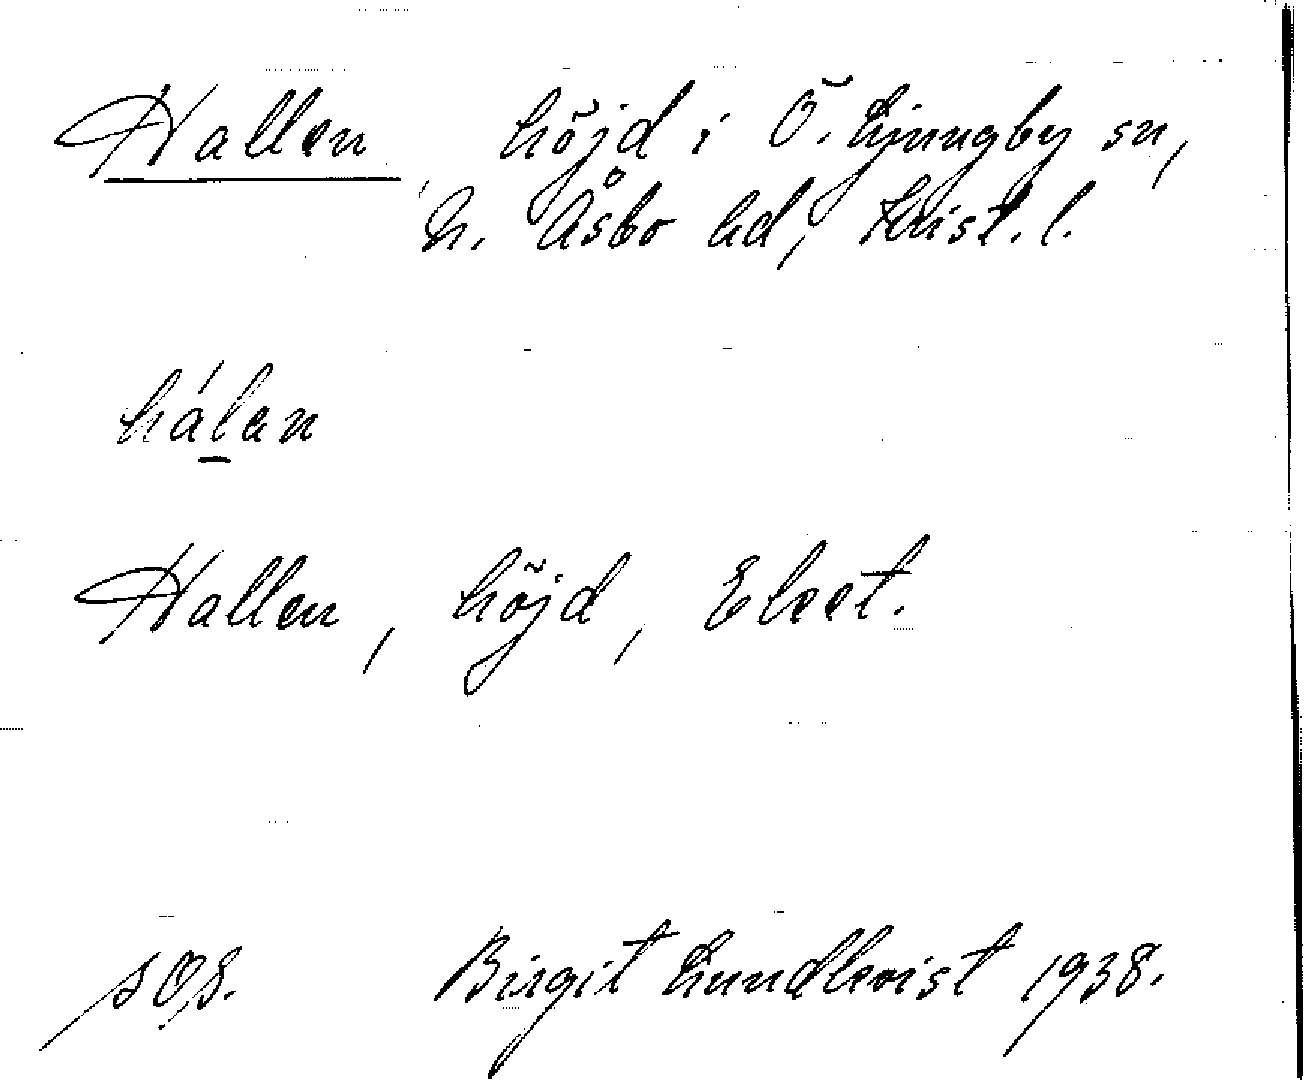 Hallen höjd i Ö. Ljungby sn,
N. Åsbo hd, Krist. l.
hálan
Hallen, höjd,
Birgit Lundkvist 1938.